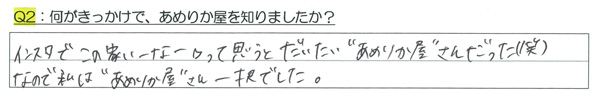 Q2：何がきっかけで、あめりか屋を知りましたか？
インスタでこの家いーなーって思うとだいたい"あめりか屋"さんだった!(笑)
なので私は"あめりか屋"さん一択でした。